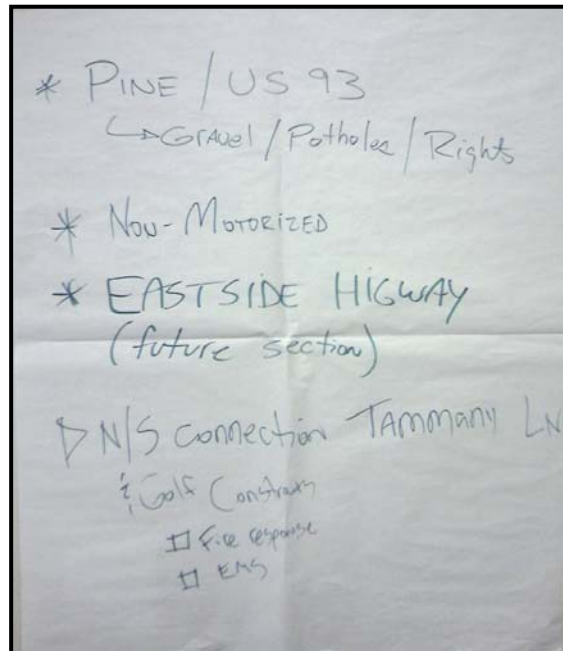 * PINE / US 93
↳ Gravel / Potholes / Rights
* NON-MOTORIZED
* EASTSIDE HIGWAY
(future section)
▷ N/S connection TAMMANY LN
& Golf
□ Fire response
□ EMS